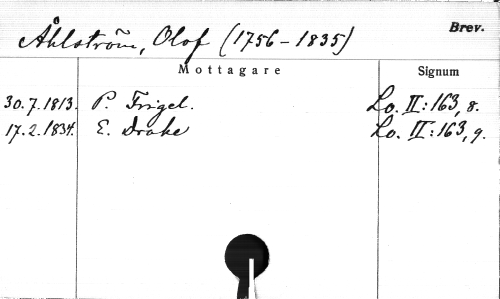 Åhlström, Olof (1756-1835) Brev.
Mottagare Signum
30.7.1813. P. Frigel. Lo. II:163, 8.
17.2.1834. E. Drake Lo. II:163, 9.